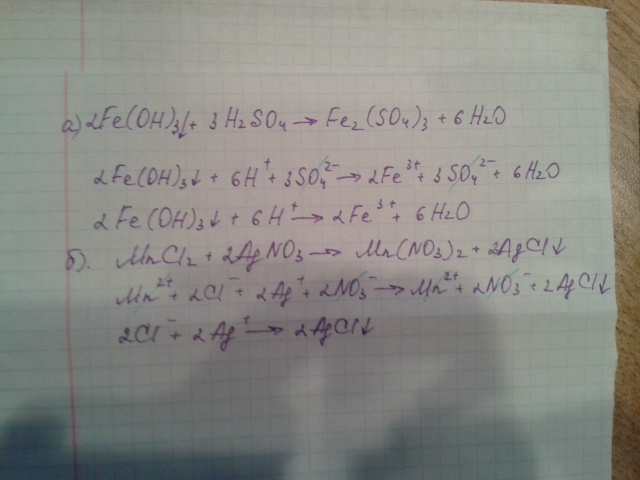 а) 2Fe(OH)₃↓ + 3H₂SO₄ → Fe₂(SO₄)₃ + 6H₂O
2Fe(OH)₃↓ + 6H⁺ + 3SO₄²⁻ → 2Fe³⁺ + 3SO₄²⁻ + 6H₂O
2Fe(OH)₃↓ + 6H⁺ → 2Fe³⁺ + 6H₂O
б). MnCl₂ + 2AgNO₃ → Mn(NO₃)₂ + 2AgCl↓
Mn²⁺ + 2Cl⁻ + 2Ag⁺ + 2NO₃⁻ → Mn²⁺ + 2NO₃⁻ + 2AgCl↓
2Cl⁻ + 2Ag⁺ → 2AgCl↓